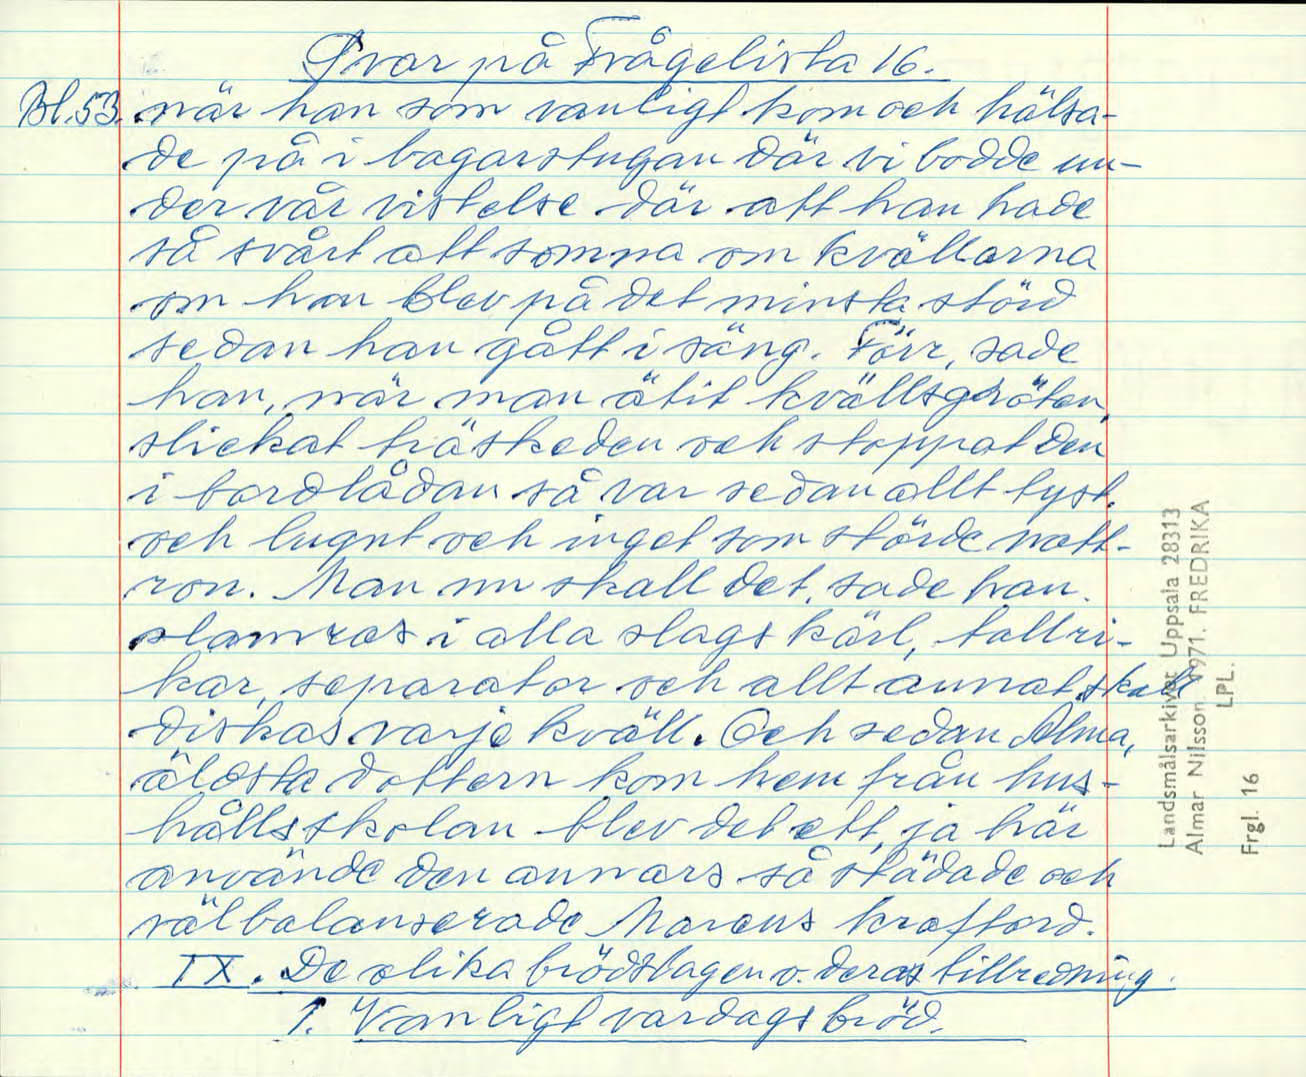 Svar på Frågelista 16.
Bl.53. när han som vanligt kom och hälsa-
de på i bagarstugan där vi bodde un-
der vår vistelse där att han hade
så svårt att somna om kvällarna
om han blev på det minsta störd
sedan han gått i säng. Förr, sade
han, när man ätit kvällsgröten,
slickat träskeden och stoppat den
i bordlådan så var sedan allt tyst
och lugnt och inget som störde natt-
ron. Man nu skall det, sade han
slamras i alla slags kärl, tallri-
kar, separator och allt annat skall
diskas varje kväll. Och sedan Alma,
äldsta dottern kom hem från hus-
hållsskolan blev det ett, ja här
använde den annars så städade och
välbalanserade Marcus kraftord.
IX. De olika brödslagen o. deras tillredning.
1. Vanligt vardagsbröd.
Landsmålsarkivet Uppsala 28313
Almar Nilsson. 1971. FREDRIKA
LPL.
Frgl. 16